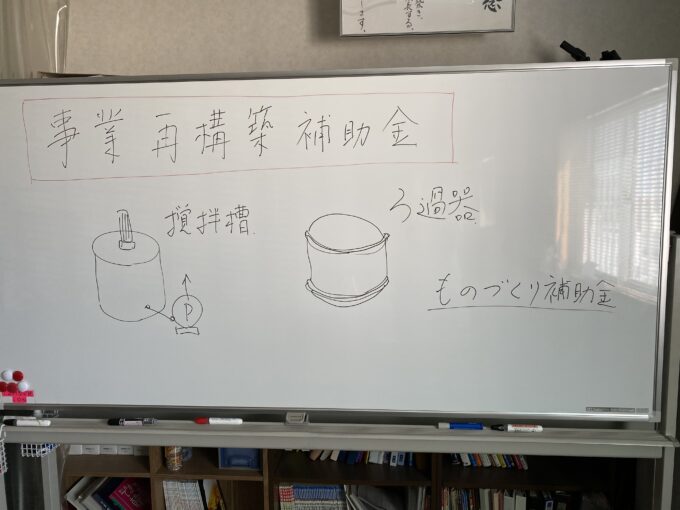 事業再構築補助金
攪拌槽
ろ過器
P
ものづくり補助金